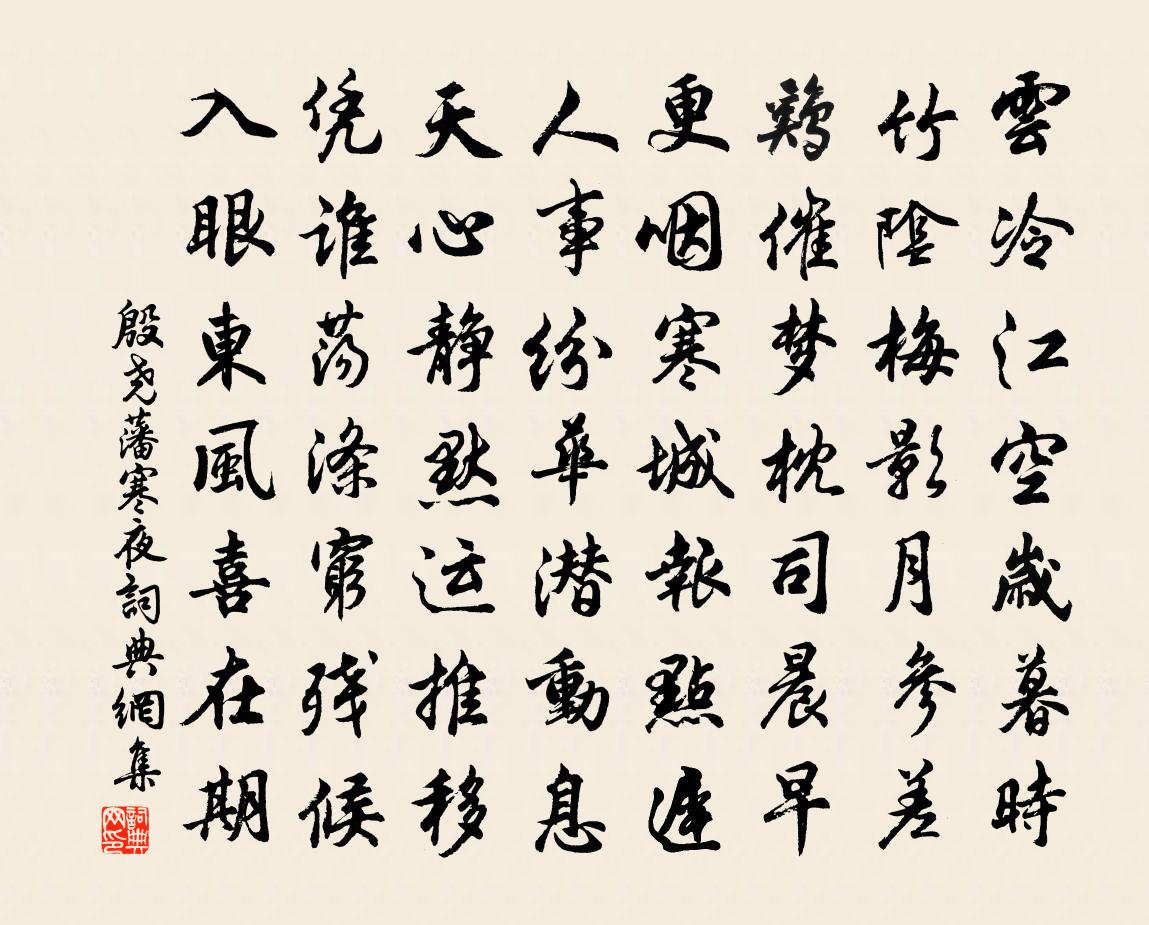 雲冷江空歲暮時
竹陰梅影月參差
鷄催梦枕司晨早
更咽寒城報點遲
人事紛華潛動息
天心靜默运推移
凭誰蕩滌窮残候
入眼東風喜在期
殷尧藩寒夜詞典網集
詞典
网印